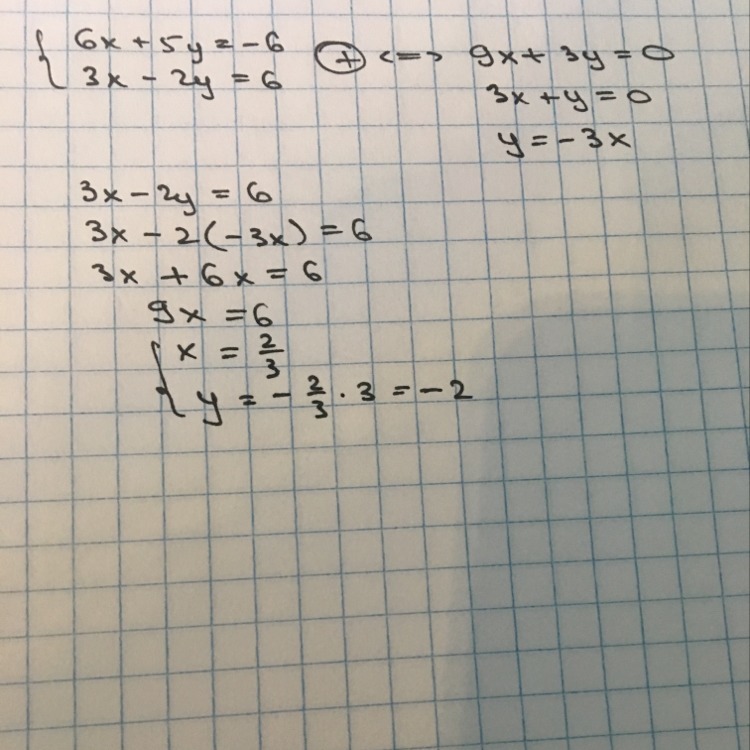 { 6x + 5y = -6 (+) <=> 9x + 3y = 0
3x - 2y = 6
3x + y = 0
y = -3x
3x - 2y = 6
3x - 2(-3x) = 6
3x + 6x = 6
9x = 6
{ x = 2/3
y = - 2/3 · 3 = -2